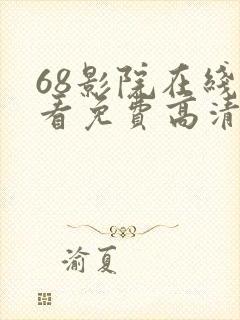 68影院在线
看免费高清
渝夏